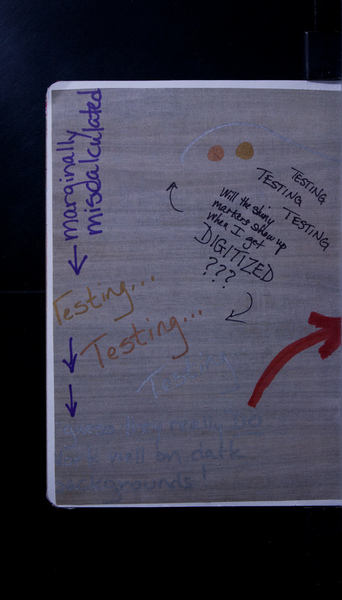 marginally
misdalculated
TESTING
TESTING
TESTING,
Will the shiny
markers show up
when I get
DIGITIZED
???
Testing...
Testing...
Testing
well on dark
backgrounds!